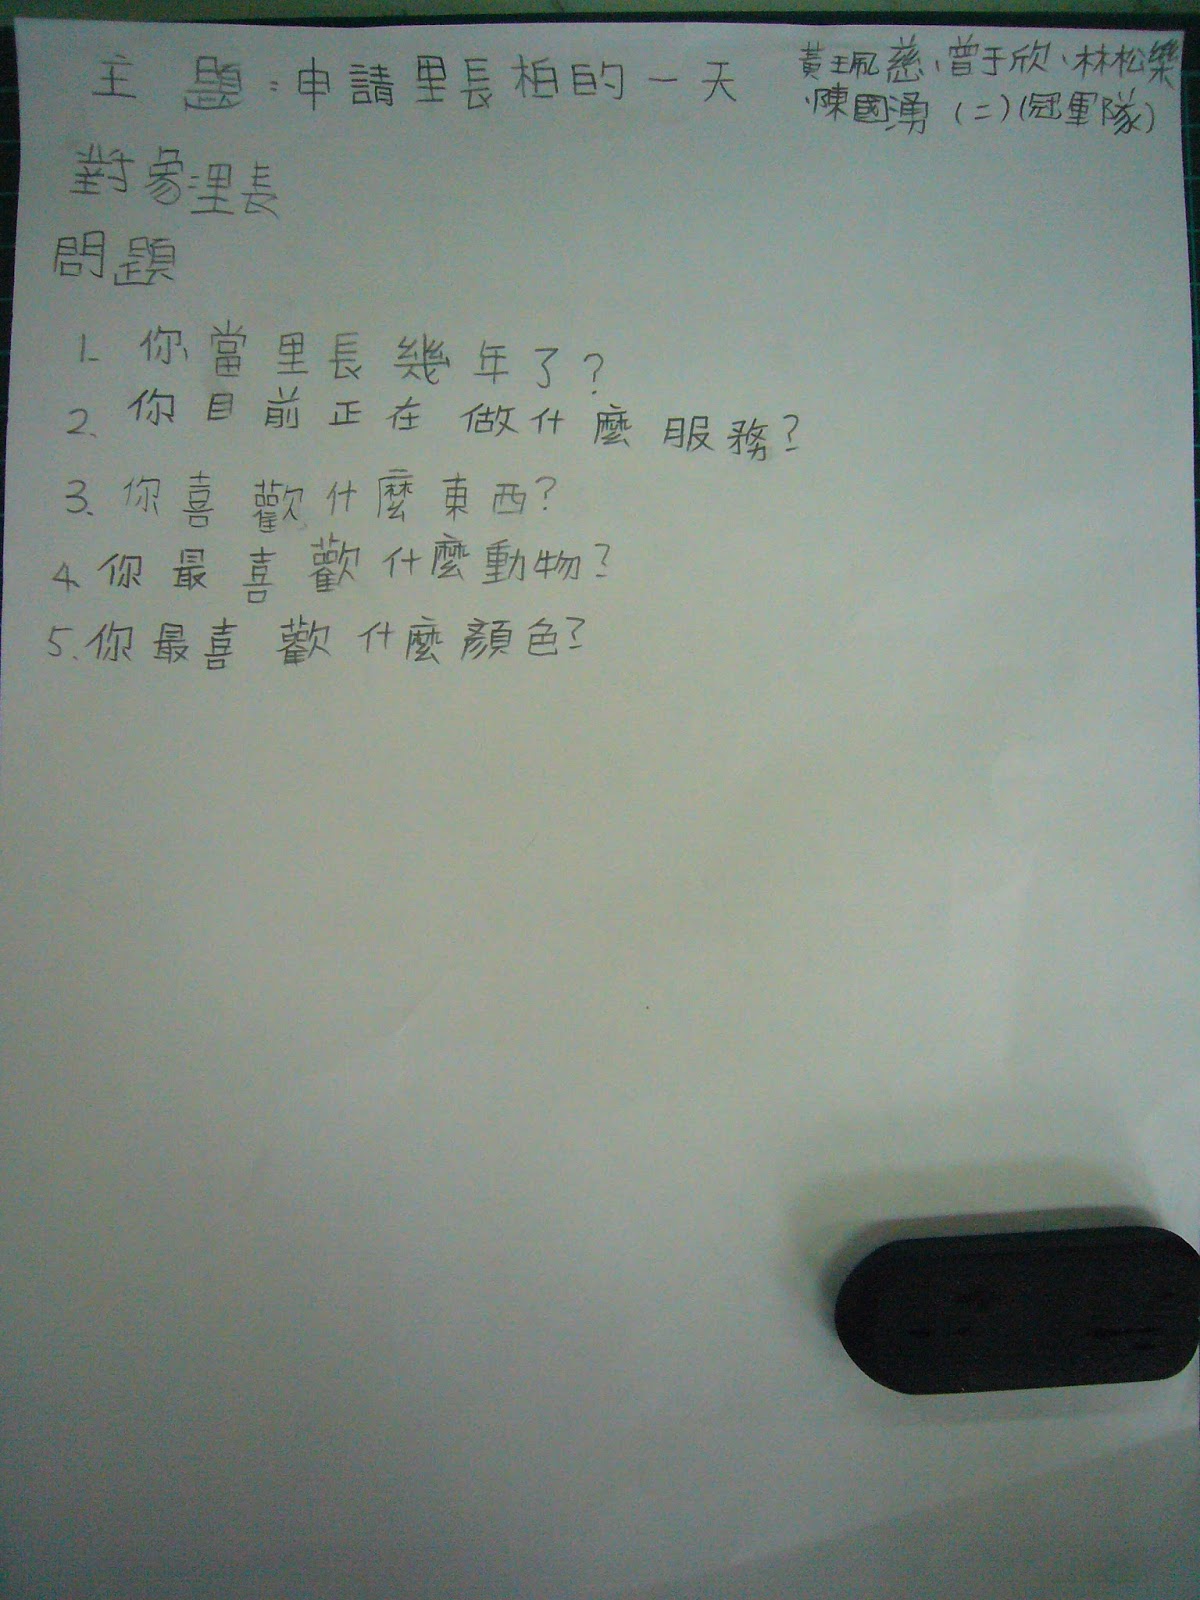 主題：申請里長柏的一天
黃珮慈、曾于欣、林松樂
、陳國湧（二）（冠軍隊）
對象：里長
問題
1. 你當里長幾年了？
2. 你目前正在做什麼服務？
3. 你喜歡什麼東西？
4. 你最喜歡什麼動物？
5. 你最喜歡什麼顏色？